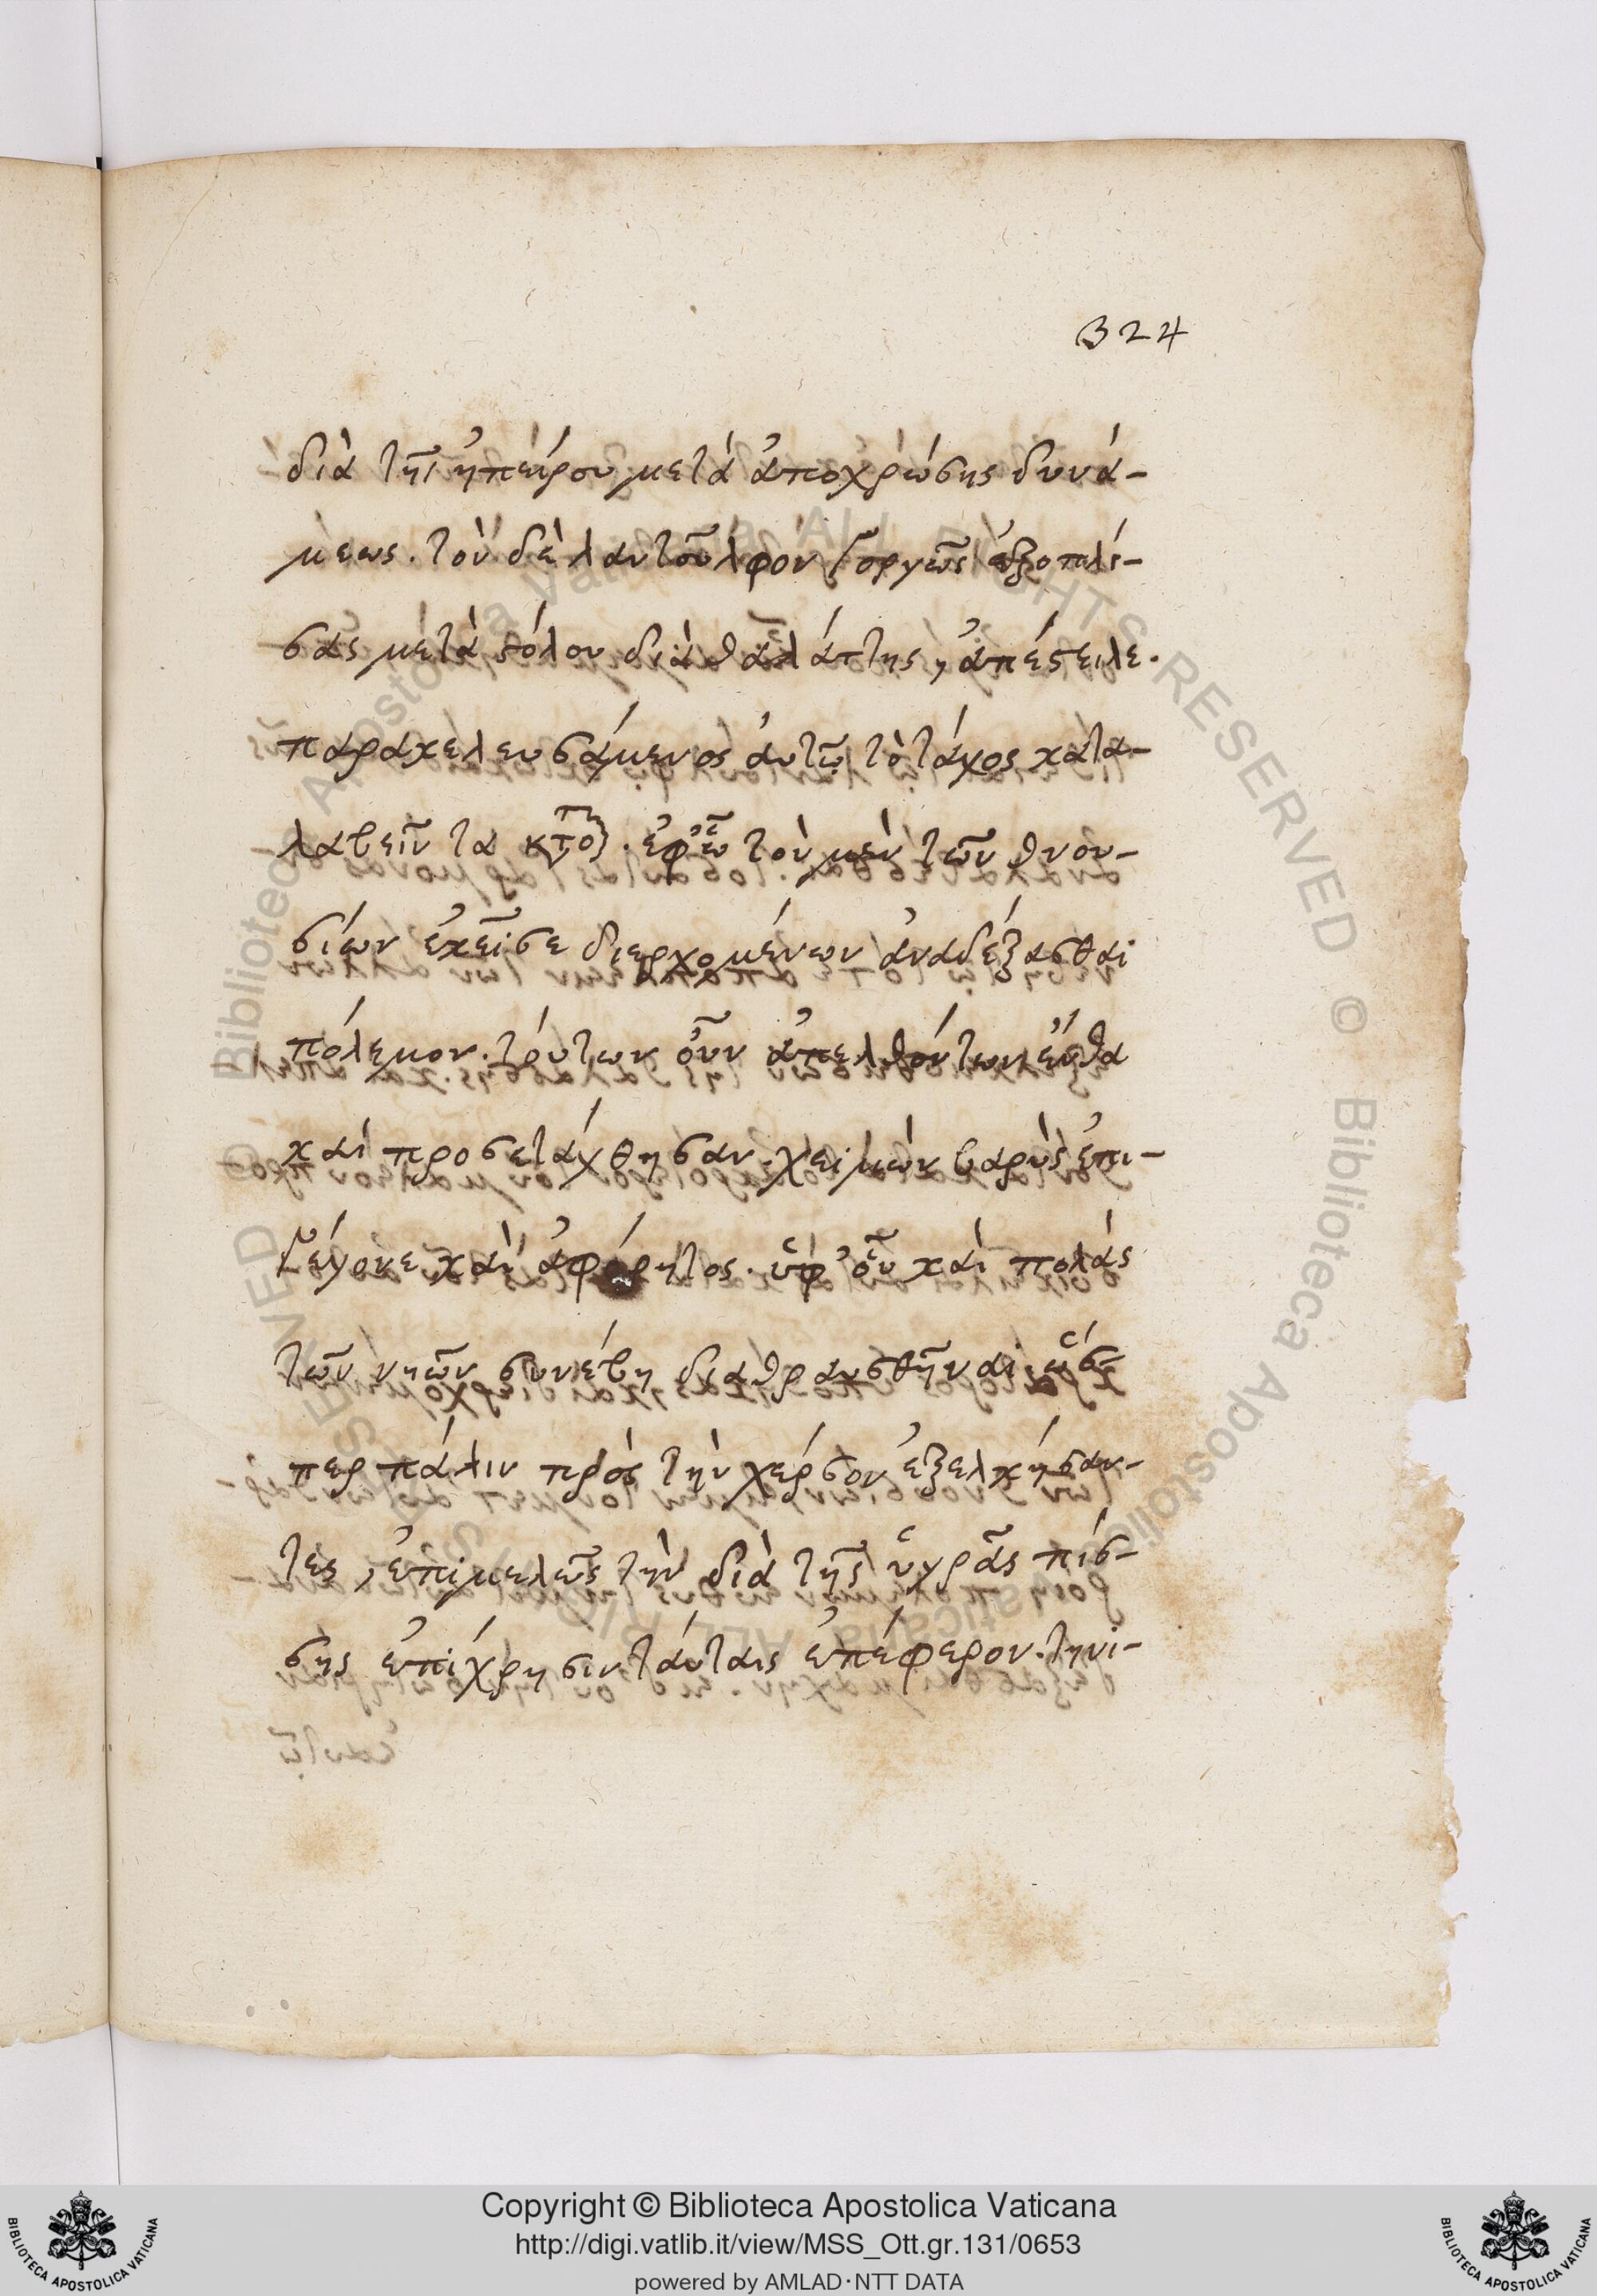 324
διὰ τῆς ἠπείρου μετὰ ἀποχρώσης δυνά-
μεως. τὸν δὲ λαντοῦλφον γοργῶς ἐξοπλί-
σας μετὰ στόλου διὰ θαλάττης, ἀπέστειλε.
παρακελευσάμενος ἀυτῷ τὸ τάχος κατα-
λαβεῖν τα. ἐφ' ᾧ τὸν μὲν τῶν θνον-
σίων ἐκεῖσε διερχομένων ἀναδέξασθαι
πόλεμον. τούτων οὖν ἀπελθόντων ἔνθα
καὶ προσετάχθησαν. χειμὼν βαρὺς ἐπι-
γέγονε καὶ ἀφόρητος. ὑφ' οὗ καὶ πολὰς
τῶν νηῶν συνέβη διαθραυσθῆναι. ἅσ-
περ πάλιν πρὸς τὴν χέρσον ἐξελκήσαν-
τες, ἐπιμελῶς τὴν διὰ τῆς ὑγρᾶς πίσ-
σης ἐπίχρησιν ταύταις ἐπέφερον. τηνι-
Copyright © Biblioteca Apostolica Vaticana
http://digi.vatlib.it/view/MSS_Ott.gr.131/0653
powered by AMLAD·NTT DATA
BIBLIOTECA APOSTOLICA VATICANA
BIBLIOTECA APOSTOLICA VATICANA